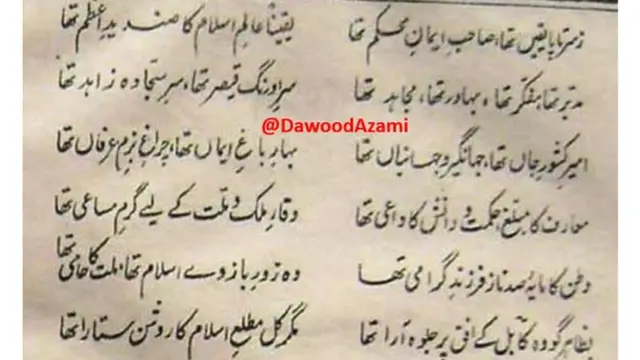 زسرتاپا یقیں تھا، صاحبِ ایمانِ محکم تھا یقیناً عالمِ اسلام کا صندیدِ اعظم تھا
مدبّر تھا، مفکر تھا، بہادر تھا، مجاہد تھا سرِ اورنگ قیصر تھا، سرِ سجادہ زاہد تھا
@DawoodAzami
امیرِ کشورِ جاں تھا، جہانگیر و جہانباں تھا بہارِ باغِ ایماں تھا، چراغِ بزمِ عرفاں تھا
معارف کا مبلغ حکمت و دانش کا داعی تھا وقارِ ملک و ملت کے لیے گرمِ مساعی تھا
وطن کا مایۂ صد ناز فرزندِ گرامی تھا وہ زورِ بازوے اسلام تھا، ملت کا حامی تھا
بظاہر گو وہ کابل کے افق پر جلوہ آرا تھا مگر کل مطلعِ اسلام کا روشن ستارا تھا